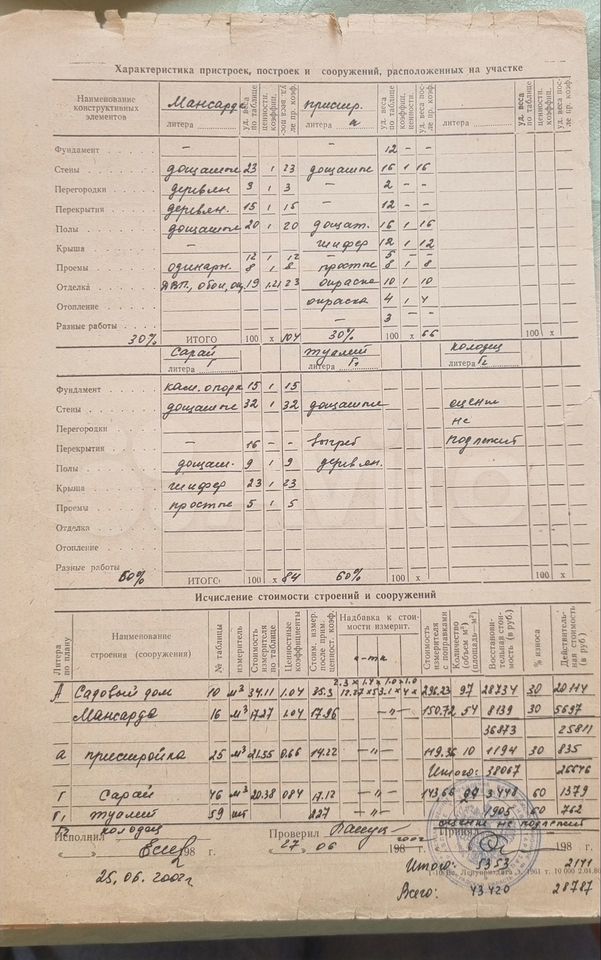 Характеристика пристроек, построек и сооружений, расположенных на участке
Наименование конструктивных элементов Мансарда литера уд. веса по таблице ценности. коэффиц. пристр. литера а уд. веса по таблице коэффиц. ценности. уд. веса после пр. коэф. литера уд. веса по таблице ценности. коэффиц. уд. веса после пр. коэф.
Фундамент — — 12 — —
Стены дощатые 23 1 23 дощатые 16 1 16
Перегородки деревян. 3 1 3 — 2 — —
Перекрытия деревян. 15 1 15 — 12 — —
Полы дощатые 20 1 20 дощат. 16 1 16
Крыша — шифер 12 1 12
12 1 12 — 5 — —
Проемы одинарн. 8 1 8 простые 8 1 8
Отделка ДВП, обои, 19 1.21 23 окраска 10 1 10
Отопление окраска 4 1 4
Разные работы — 3 — —
30% ИТОГО 100 х 104 30% 100 х 66 100 х
Сарай туалет колодец
литера Г литера Г1 литера Г2
Фундамент кам. опоры 15 1 15
Стены дощатые 32 1 32 дощатые оценке
Перегородки не
Перекрытия — 16 — — выгреб подлежит
Полы дощат. 9 1 9 деревян.
Крыша шифер 23 1 23
Проемы простые 5 1 5
Отделка
Отопление
Разные работы
60% ИТОГО 100 х 84 60% 100 х 100 х
Исчисление стоимости строений и сооружений
Литера по плану Наименование строения (сооружения) № таблицы измеритель Стоимость измерителя по таблице Ценностные коэффициенты Стоим. измер. после прим. ценност. коэф. Надбавка к стоимости измерит. Стоимость измерителя с поправками Количество (объем м³) (площадь—м²) Восстановительная стоимость (в руб.) % износа Действительная стоимость (в руб.)
А Садовый дом 10 м³ 34.11 1.04 35.3 296.23 97 28734 30 20114
Мансарда 16 м³ 17.27 1.04 17.96 —"— 150.72 54 8139 30 5697
36873 25811
а пристройка 25 м³ 21.55 0.66 14.22 —"— 119.36 10 1194 30 835
Итого: 38067 26646
Г Сарай 46 м³ 20.38 0.84 17.12 —"— 143.66 24 3448 60 1379
Г1 туалет 59 шт 227 —"— 1905 60 762
Г2 колодец оценке не подлежит
Исполнил 198 г. Проверил 198 г. Принял 198 г.
25.06.2002г 27 06 2002
Итого: 5353 2141
Всего: 43420 28787